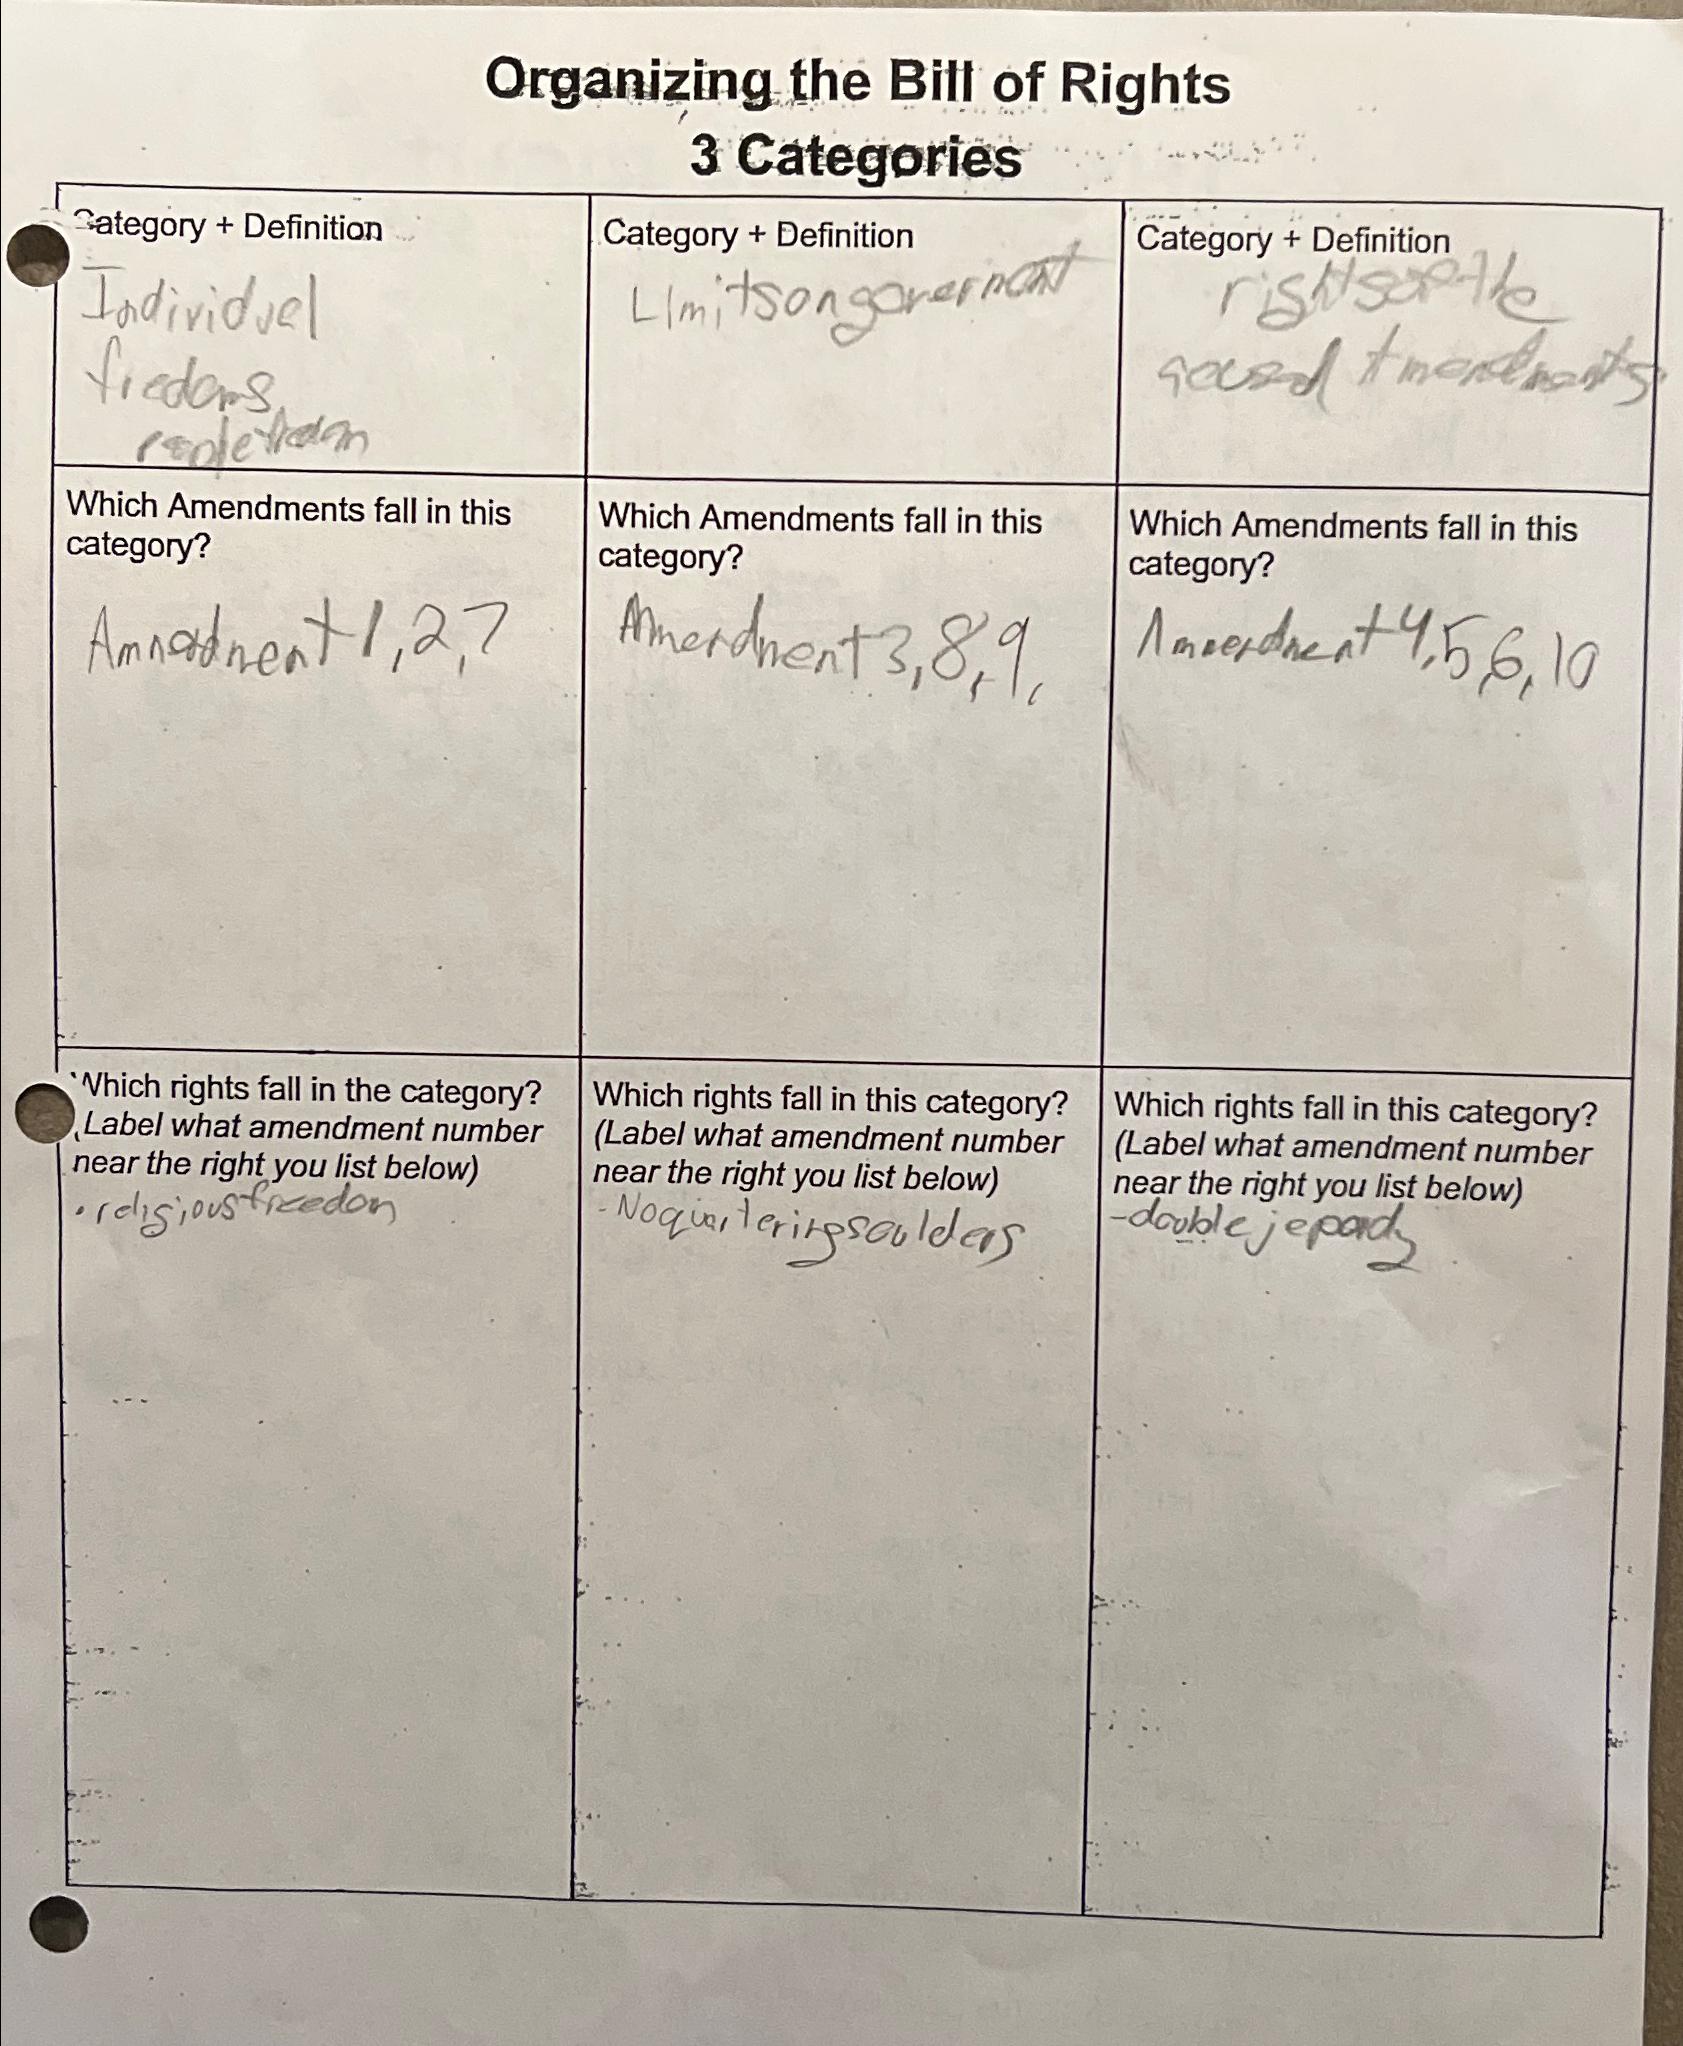 Organizing the Bill of Rights
3 Categories
Category + Definition
Individual
fredoms
Category + Definition
Limitsongovernment
Category + Definition
rightsofthe
Amendments
Which Amendments fall in this
category?
Amnedment 1,2,7
Which Amendments fall in this
category?
Amendment 3,8,9,
Which Amendments fall in this
category?
Amnendment 4,5,6,10
Which rights fall in the category?
(Label what amendment number
near the right you list below)
• religiousfreedom
Which rights fall in this category?
(Label what amendment number
near the right you list below)
-Noquarteringsoulders
Which rights fall in this category?
(Label what amendment number
near the right you list below)
-doublejepordy